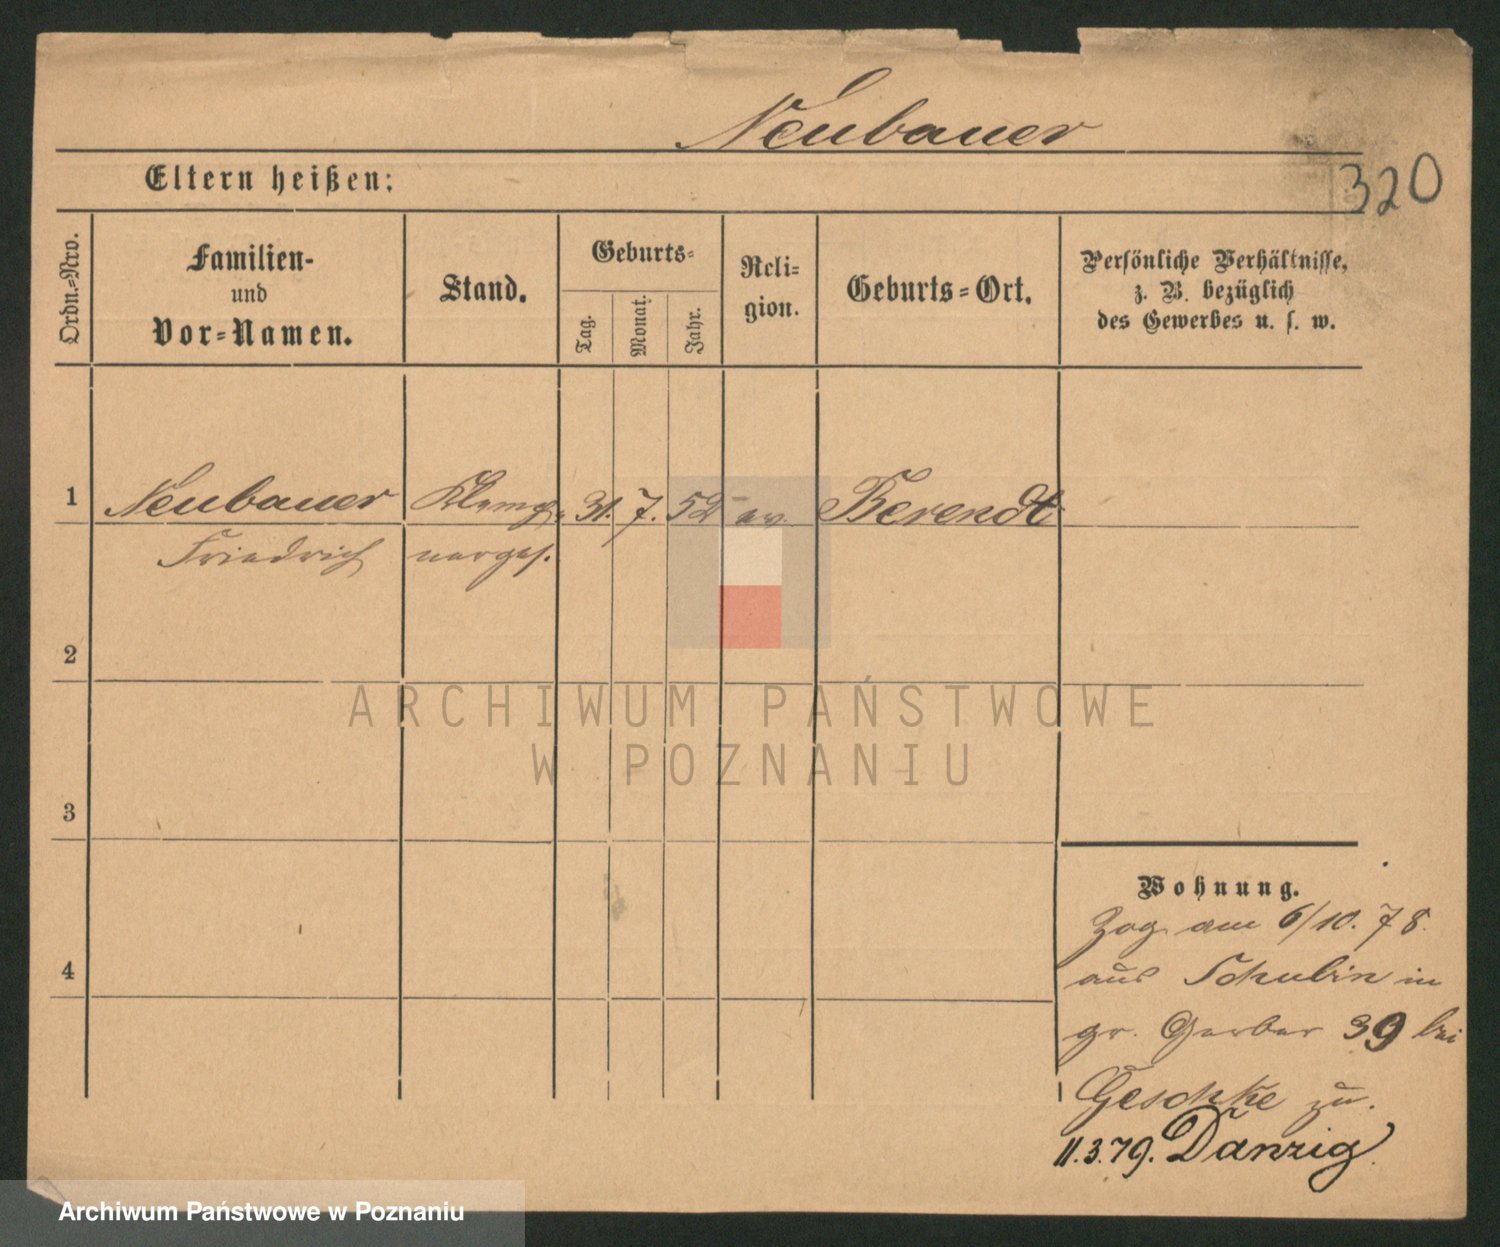 Neubauer
Eltern heißen:
320
Ordn.=Nro.
Familien-
und
Vor=Namen.
Stand.
Geburts=
Tag.
Monat.
Jahr.
Reli=
gion.
Geburts=Ort.
Persönliche Verhältnisse,
z. B. bezüglich
des Gewerbes u. s. w.
1
Neubauer
Klemp=
31.
7.
52
ev.
Berendt
Friedrich
nerges.
2
ARCHIWUM PAŃSTWOWE
W POZNANIU
3
4
Wohnung.
Zog am 6/10. 78.
aus Schubin in
gr. Gerber 39 bei
Geschke zu.
11.3.79. Danzig.
Archiwum Państwowe w Poznaniu